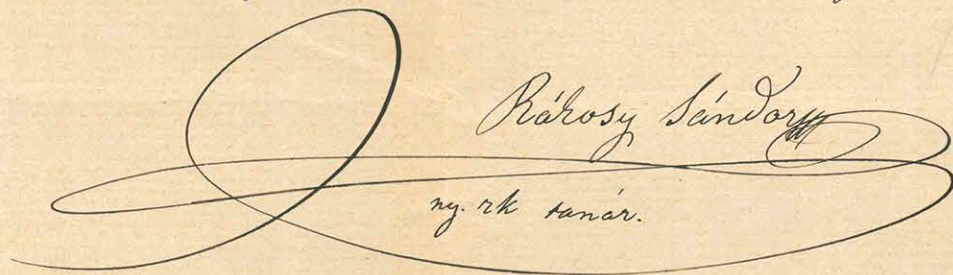 Rákosy Sándor
ny. rk tanár.